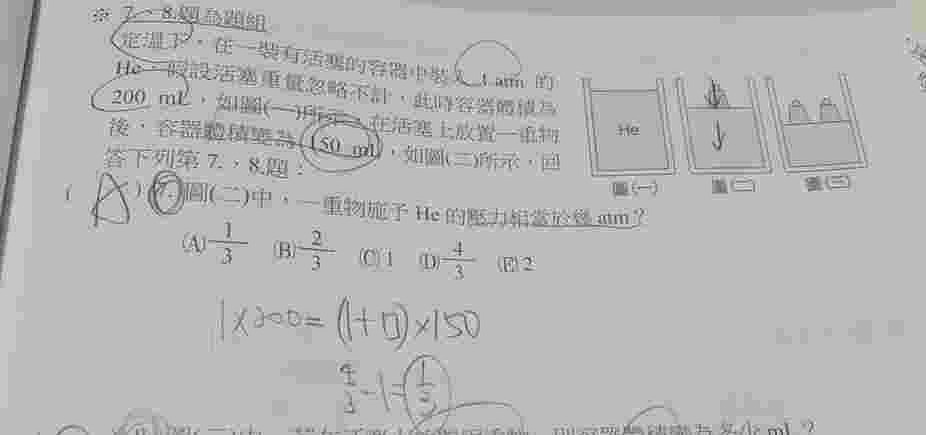 ※ 7.、8.題為題組
定溫下，在一裝有活塞的容器中裝入 1 atm 的
He，假設活塞重量忽略不計，此時容器體積為
200 mL，如圖(一)所示，在活塞上放置一重物
後，容器體積變為 150 mL，如圖(二)所示，回
答下列第 7.、8.題：
He
圖(一) 圖(二) 圖(三)
( A ) 7. 圖(二)中，一重物施予 He 的壓力相當於幾 atm？
(A) 1/3 (B) 2/3 (C) 1 (D) 4/3 (E) 2
1×200=(1+□)×150
4/3-1=1/3